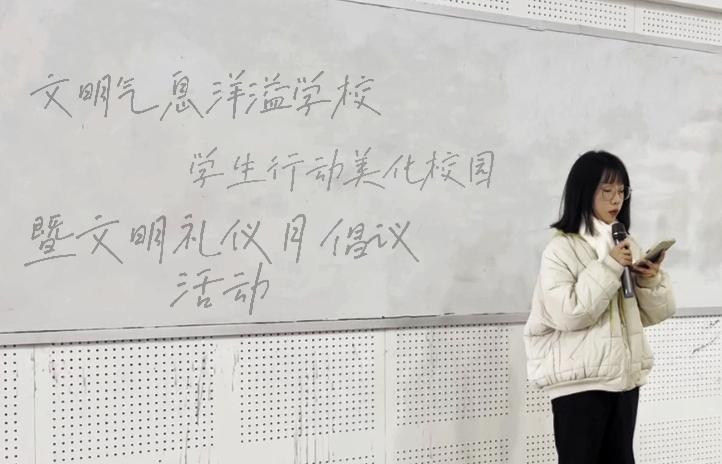 文明气息洋溢学校
学生行动美化校园
暨文明礼仪月倡议
活动